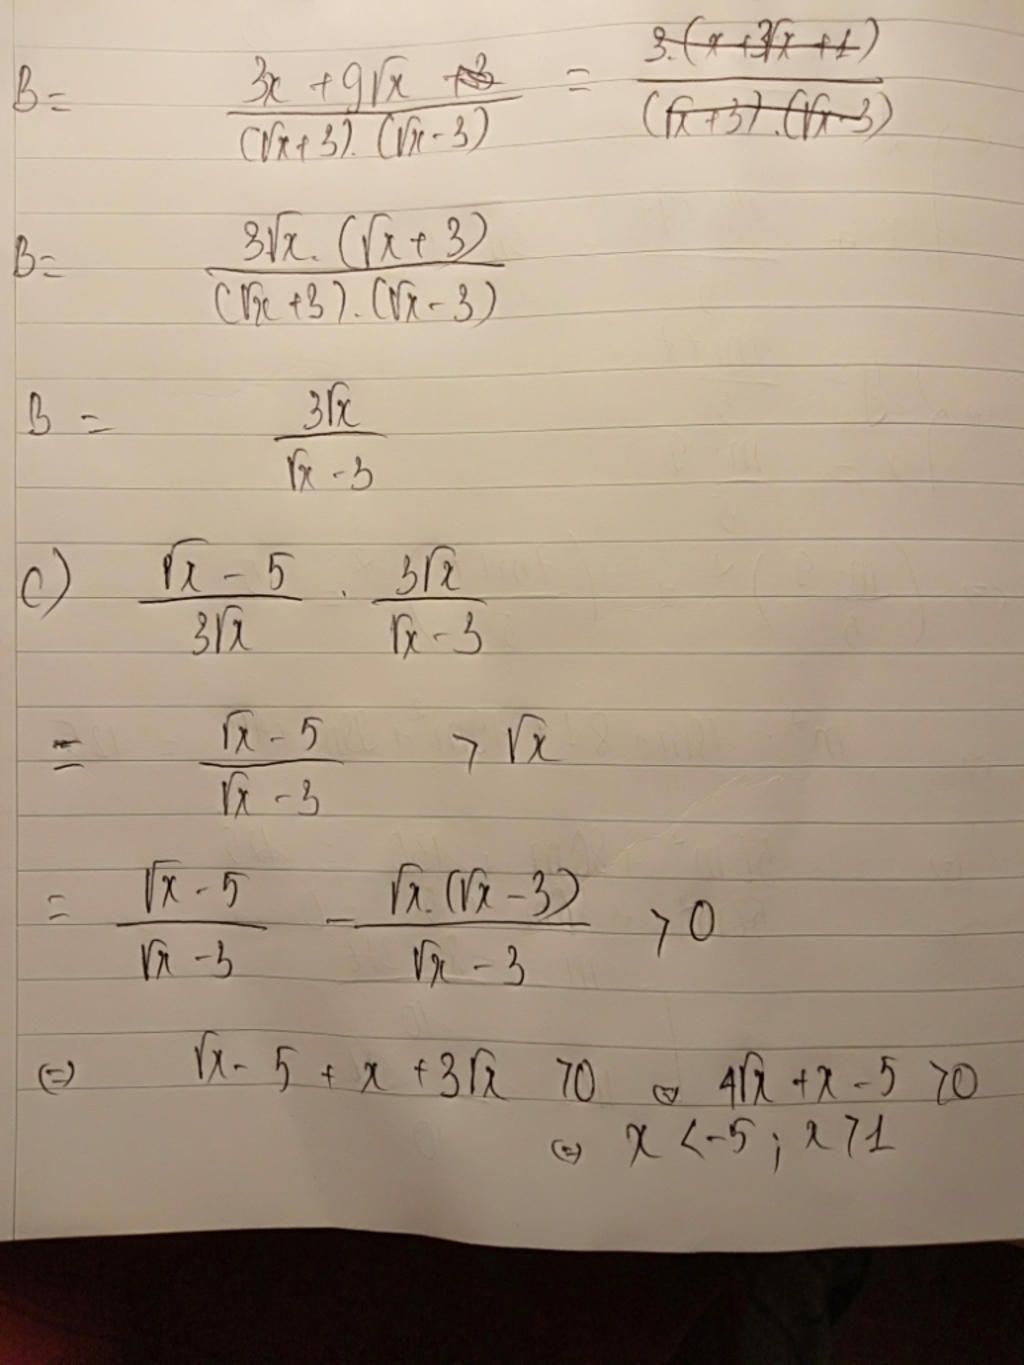 B = (3x + 9√x) / ((√x + 3).(√x - 3)) = 3.(x + 3√x + 1) / ((√x + 3).(√x - 3))
B = 3√x.(√x + 3) / ((√x + 3).(√x - 3))
B = 3√x / (√x - 3)
c) (√x - 5) / 3√x . 3√x / (√x - 3)
= (√x - 5) / (√x - 3) > √x
= (√x - 5) / (√x - 3) - √x.(√x - 3) / (√x - 3) > 0
⇔ √x - 5 + x + 3√x > 0 ⇔ 4√x + x - 5 > 0
⇔ x < -5 ; x > 1